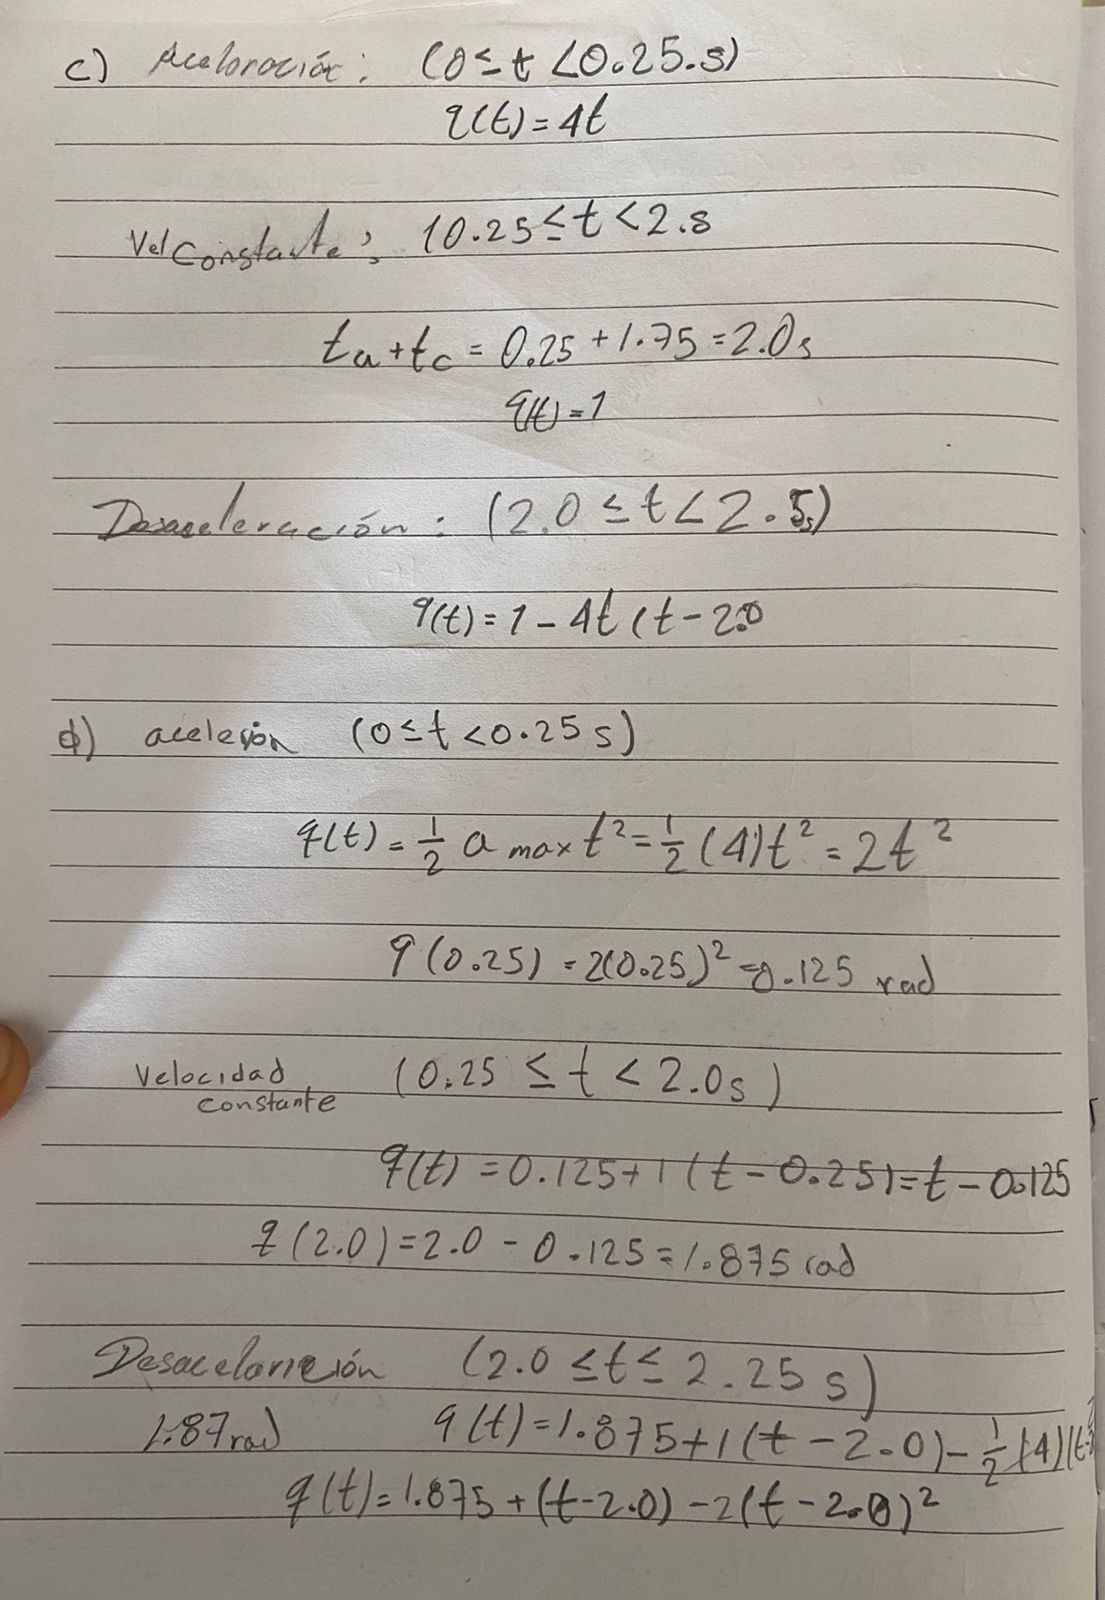 c) Aceloración: (0 ≤ t < 0.25.s)
q(t) = 4t
Vel Constante: (0.25 ≤ t < 2.s
ta + tc = 0.25 + 1.75 = 2.0s
q(t) = 1
Desaceleración: (2.0 ≤ t < 2.5s)
q(t) = 1 - 4t (t - 2.0
d) acelerión (0 ≤ t < 0.25 s)
q(t) = 1/2 a max t² = 1/2 (4)t² = 2t²
q(0.25) = 2(0.25)² = 0.125 rad
Velocidad constante (0.25 ≤ t < 2.0s)
q(t) = 0.125 + 1(t - 0.25) = t - 0.125
q(2.0) = 2.0 - 0.125 = 1.875 rad
Desacelarición (2.0 ≤ t ≤ 2.25 s)
1.87 rad q(t) = 1.875 + 1(t - 2.0) - 1/2 (4)(t-
q(t) = 1.875 + (t - 2.0) - 2(t - 2.0)²